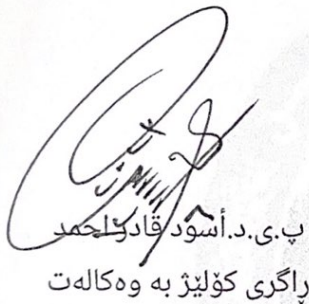 پ.ی.د.أسود قادر احمد
ڕاگری کۆلێژ به وەکالەت